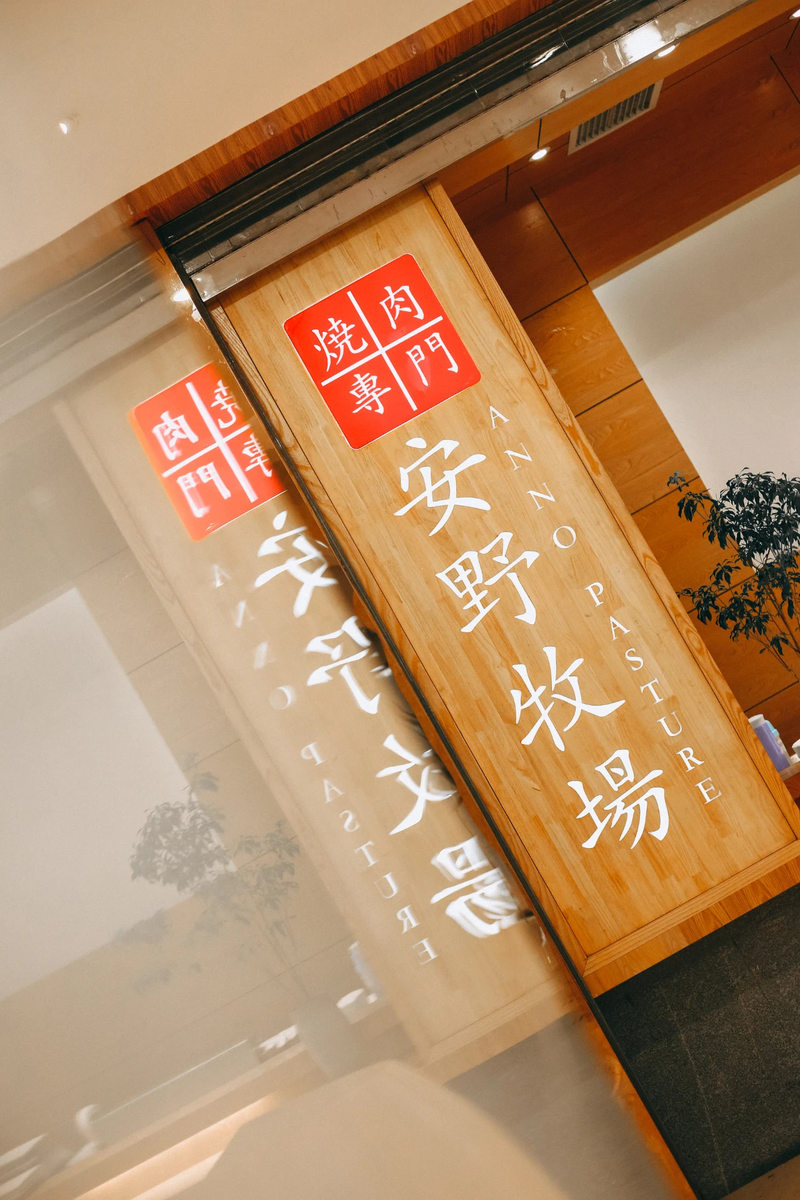 燒肉
專門
安野牧場
ANNO PASTURE